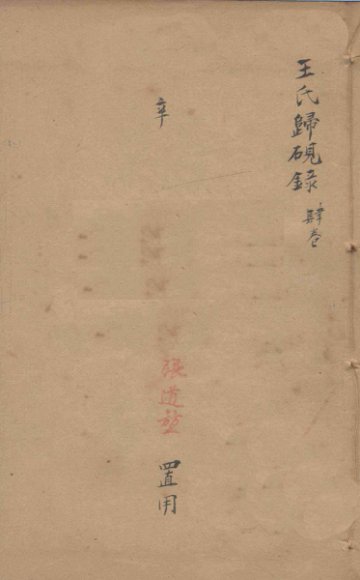 王氏歸硯錄 肆卷
辛
張道
置用